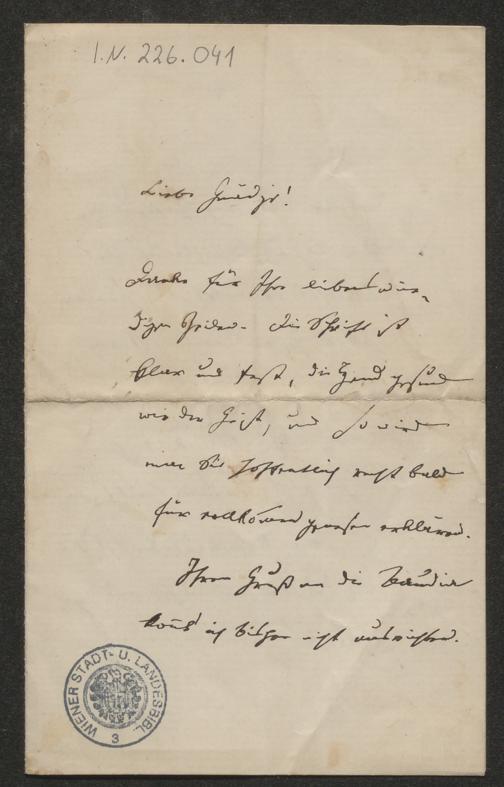 I.N. 226.041
Liebe Gnädige!
Danke für Ihre liebenswür-
digen Zeilen. Die Schrift ist
klar und fest, die Hand gesund
wie der Geist, und so wird
man Sie hoffentlich recht bald
für vollkom̅en genesen erklären.
Ihren Gruß an die
kon̅t' ich bisher nicht ausrichten.
WIENER STADT- U. LANDESBIBL.
3